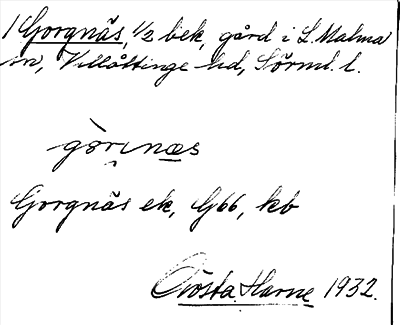 1 Gorgnäs, 1/2 bek, gård i L. Malma
sn, Villåttinge hd, Sörml. l.
Gorgnäs ek, G66, kb
Gösta Harne 1932.